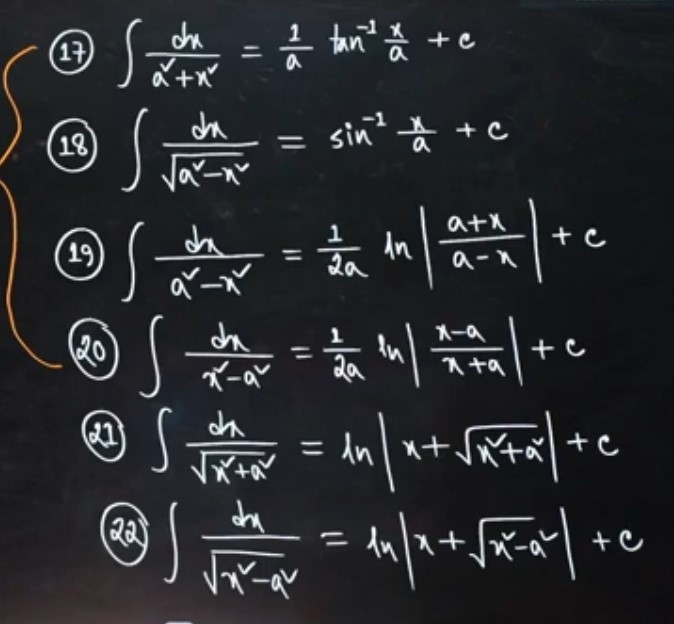 (17) ∫ dx/(a²+x²) = 1/a tan⁻¹ x/a + c
(18) ∫ dx/√(a²−x²) = sin⁻¹ x/a + c
(19) ∫ dx/(a²−x²) = 1/2a ln |(a+x)/(a−x)| + c
(20) ∫ dx/(x²−a²) = 1/2a ln |(x−a)/(x+a)| + c
(21) ∫ dx/√(x²+a²) = ln |x+√(x²+a²)| + c
(22) ∫ dx/√(x²−a²) = ln |x+√(x²−a²)| + c